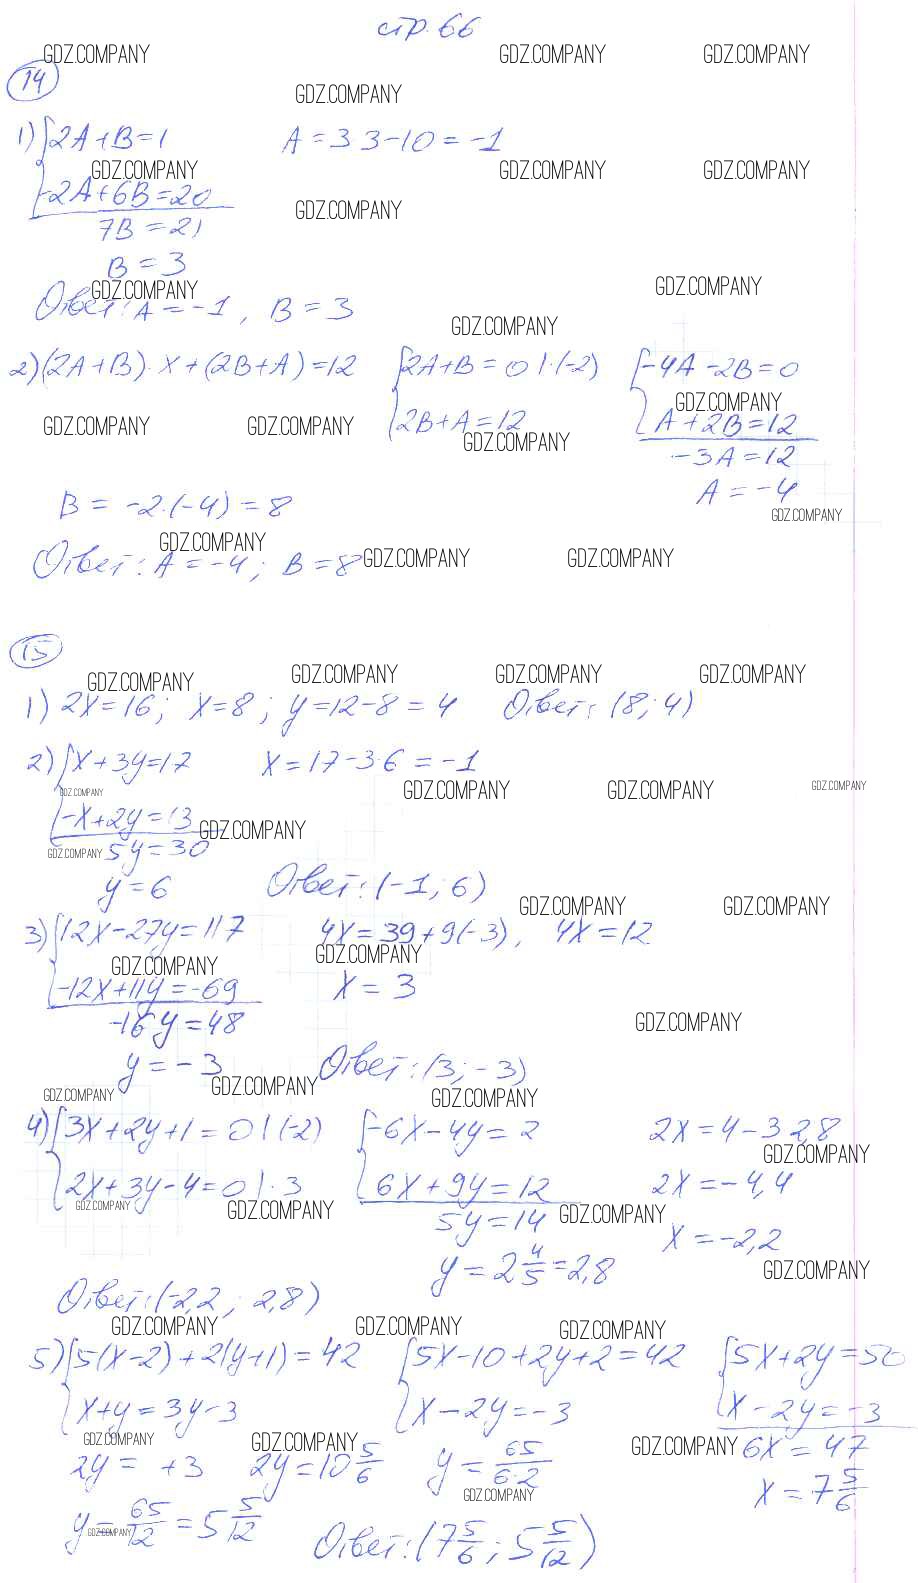 стр. 66
GDZ.COMPANY GDZ.COMPANY GDZ.COMPANY
14
GDZ.COMPANY
1) {2A+B=1 A=3·3-10=-1
GDZ.COMPANY GDZ.COMPANY GDZ.COMPANY
-2A+6B=20
GDZ.COMPANY
7B=21
B=3
GDZ.COMPANY GDZ.COMPANY
Ответ: A=-1, B=3
GDZ.COMPANY
2) (2A+B)·x+(2B+A)=12 {2A+B=0 |·(-2) {-4A-2B=0
GDZ.COMPANY
2B+A=12 A+2B=12
GDZ.COMPANY GDZ.COMPANY GDZ.COMPANY
-3A=12
A=-4
B=-2·(-4)=8
GDZ.COMPANY
GDZ.COMPANY GDZ.COMPANY GDZ.COMPANY
Ответ: A=-4; B=8
15
GDZ.COMPANY GDZ.COMPANY GDZ.COMPANY GDZ.COMPANY
1) 2x=16; x=8; y=12-8=4 Ответ: (8; 4)
2) {x+3y=17 x=17-3·6=-1
GDZ.COMPANY GDZ.COMPANY GDZ.COMPANY GDZ.COMPANY
-x+2y=13
GDZ.COMPANY
GDZ.COMPANY 5y=30
y=6 Ответ: (-1; 6)
GDZ.COMPANY GDZ.COMPANY
3) {12x-27y=117 4x=39+9(-3), 4x=12
GDZ.COMPANY GDZ.COMPANY
-12x+11y=-69 x=3
-16y=48
GDZ.COMPANY
y=-3 Ответ: (3; -3)
GDZ.COMPANY GDZ.COMPANY GDZ.COMPANY
4) {3x+2y+1=0 |(-2) {-6x-4y=2 2x=4-3·2,8
GDZ.COMPANY
2x+3y-4=0 |·3 6x+9y=12 2x=-4,4
GDZ.COMPANY GDZ.COMPANY GDZ.COMPANY
5y=14
x=-2,2
y=2 4/5=2,8
GDZ.COMPANY
Ответ: (-2,2; 2,8)
GDZ.COMPANY GDZ.COMPANY GDZ.COMPANY
5) {5(x-2)+2(y+1)=42 {5x-10+2y+2=42 {5x+2y=50
x+y=3y-3 x-2y=-3 x-2y=-3
GDZ.COMPANY GDZ.COMPANY GDZ.COMPANY
6x=47
2y= +3 2y=10 5/6 y=65/6·2
GDZ.COMPANY
x=7 5/6
y=65/12=5 5/12
GDZ.COMPANY
Ответ: (7 5/6; 5 5/12)